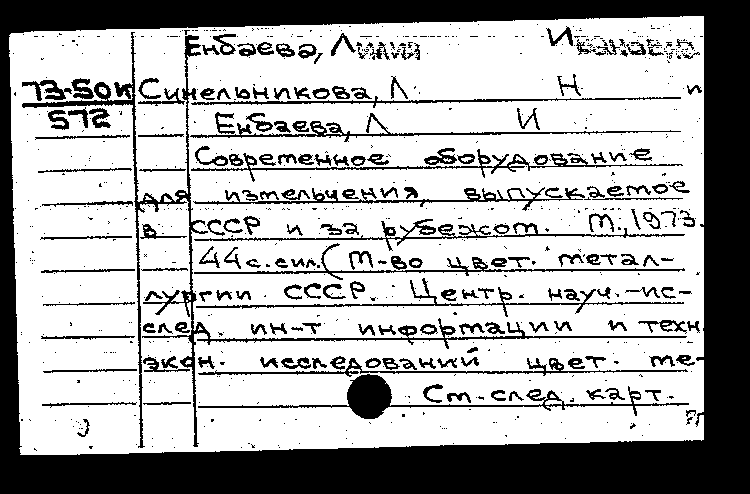 Енбаева, Лилия Ивановна
73-50к Синельникова, Л Н и
572 Енбаева, Л И
Современное оборудование
для измельчения, выпускаемое
в СССР и за рубежом. М., 1973.
44 с. с ил. (М-во цвет. метал-
лургии СССР. Центр. науч.-ис-
след. ин-т информации и техн.
экон. исследований цвет. ме-
См. след. карт.